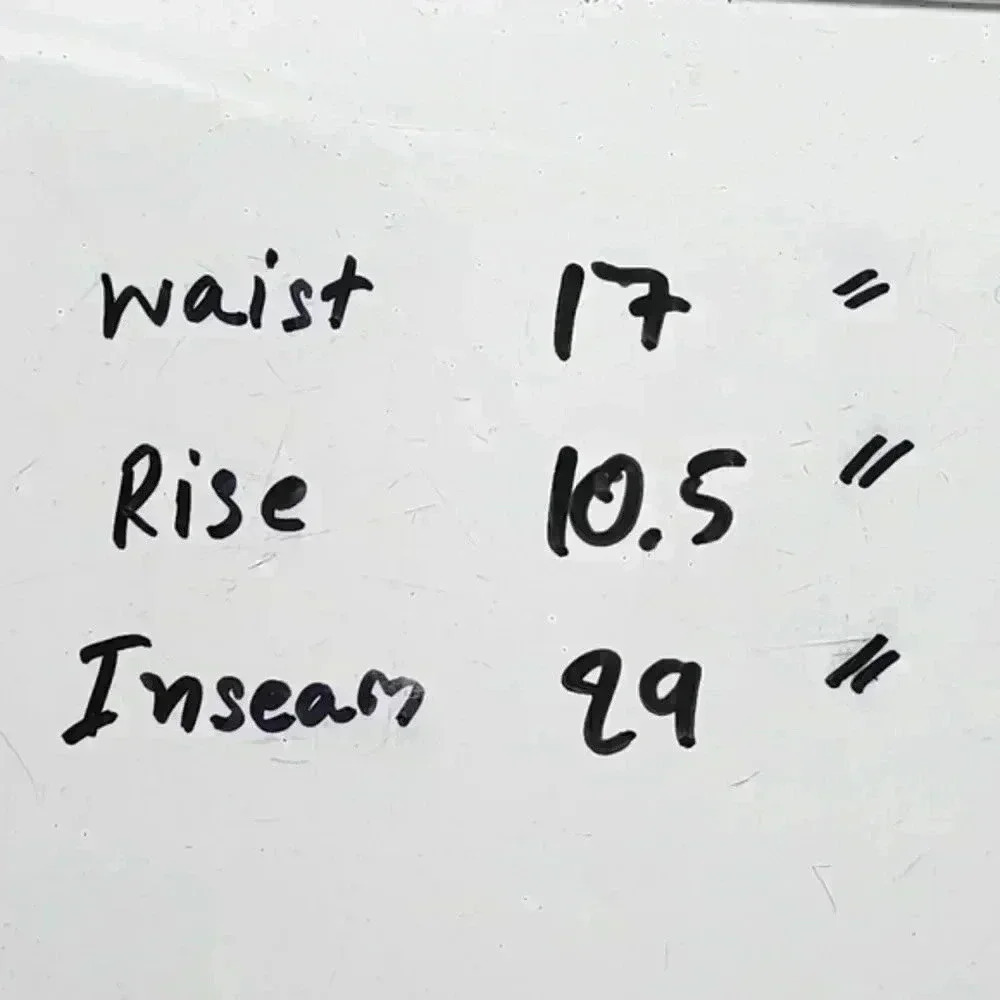 waist 17 "
Rise 10.5 "
Inseam 29 "